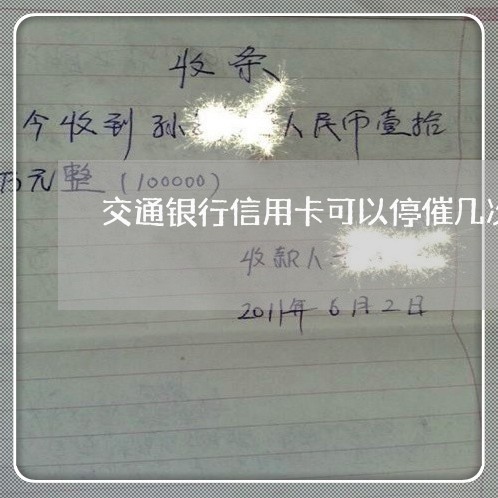 收条
今收到 孙 人民币壹拾
万元整 (100000)
交通银行信用卡可以停催几
收款人
2011年6月2日